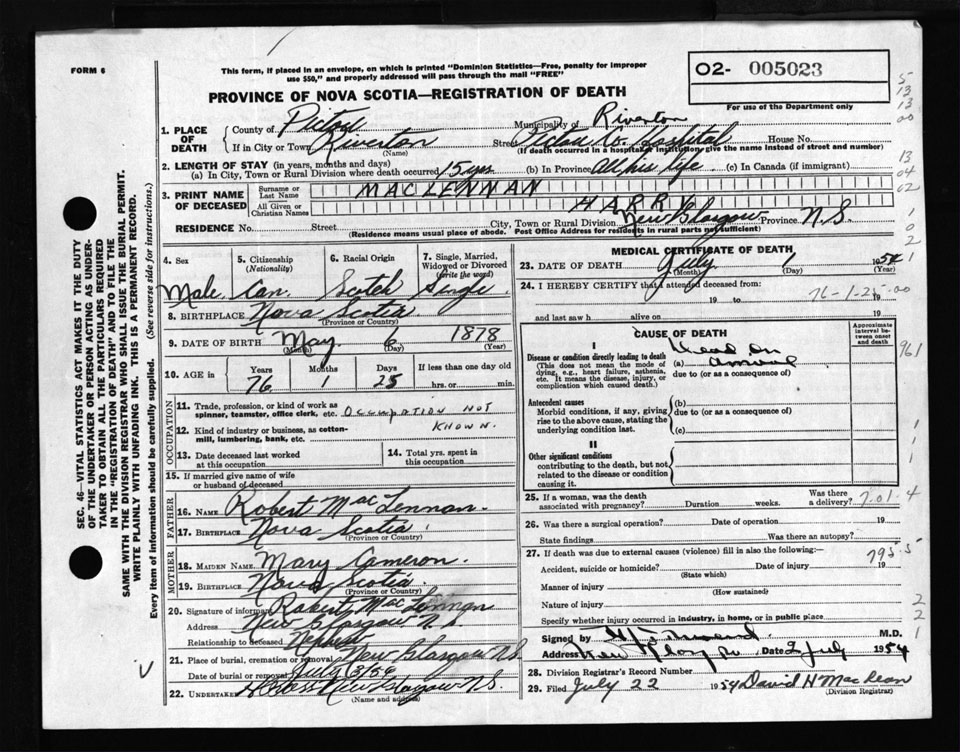 FORM 6
This form, if placed in an envelope, on which is printed "Dominion Statistics—Free, penalty for improper
use $50," and properly addressed will pass through the mail "FREE"
O2- 005023
For use of the Department only
PROVINCE OF NOVA SCOTIA—REGISTRATION OF DEATH
1. PLACE OF DEATH
County of Pictou Municipality of Riverton
If in City or Town Riverton (Name) Street Pictou Co. Hospital House No.
(If death occurred in a hospital or institution give the name instead of street and number)
2. LENGTH OF STAY (in years, months and days)
(a) In City, Town or Rural Division where death occurred 15 yrs (b) In Province All his life (c) In Canada (if immigrant)
3. PRINT NAME OF DECEASED
Surname or Last Name MACLENNAN
All Given or Christian Names HARRY
RESIDENCE No. Street City, Town or Rural Division New Glasgow Province N.S.
(Residence means usual place of abode. Post Office Address for residents in rural parts not sufficient)
4. Sex 5. Citizenship (Nationality) 6. Racial Origin 7. Single, Married, Widowed or Divorced (write the word)
Male Can. Scotch Single
8. BIRTHPLACE Nova Scotia
(Province or Country)
9. DATE OF BIRTH May 6 1878
(Month) (Day) (Year)
10. AGE in Years Months Days If less than one day old
76 1 25 hrs. or min.
OCCUPATION
11. Trade, profession, or kind of work as spinner, teamster, office clerk, etc. OCCUPATION NOT
12. Kind of industry or business, as cotton-mill, lumbering, bank, etc. KNOWN.
13. Date deceased last worked at this occupation
14. Total yrs. spent in this occupation
15. If married give name of wife or husband of deceased
FATHER
16. NAME Robert MacLennan.
17. BIRTHPLACE Nova Scotia.
(Province or Country)
MOTHER
18. MAIDEN NAME Mary Cameron.
19. BIRTHPLACE Nova Scotia.
(Province or Country)
20. Signature of informant Robert MacLennan
Address New Glasgow N.S.
Relationship to deceased Nephew
21. Place of burial, cremation or removal New Glasgow N.S.
Date of burial or removal July 3/54
22. UNDERTAKER New Glasgow N.S.
(Name and address)
MEDICAL CERTIFICATE OF DEATH
23. DATE OF DEATH July 1 1954
(Month) (Day) (Year)
24. I HEREBY CERTIFY that I attended deceased from:
19 to 19
76-1-25-00
and last saw h alive on 19
CAUSE OF DEATH
Approximate interval between onset and death
I
Disease or condition directly leading to death
(This does not mean the mode of dying, e.g., heart failure, asthenia, etc. It means the disease, injury, or complication which caused death.)
(a) Dead on Arrival
due to (or as a consequence of)
Antecedent causes
Morbid conditions, if any, giving rise to the above cause, stating the underlying condition last.
(b)
due to (or as a consequence of)
(c)
II
Other significant conditions
contributing to the death, but not related to the disease or condition causing it.
25. If a woman, was the death associated with pregnancy? Duration weeks. Was there a delivery?
26. Was there a surgical operation? Date of operation 19
State findings Was there an autopsy?
27. If death was due to external causes (violence) fill in also the following:—
Accident, suicide or homicide? Date of injury 19
(State which)
795.5
Manner of injury
(How sustained)
Nature of injury
Specify whether injury occurred in industry, in home, or in public place
Signed by M.D.
Address New Glasgow Date 2 July 1954
28. Division Registrar's Record Number
29. Filed July 22 1954 David H MacLean
(Division Registrar)
SEC. 46—VITAL STATISTICS ACT MAKES IT THE DUTY
OF THE UNDERTAKER OR PERSON ACTING AS UNDER-
TAKER TO OBTAIN ALL THE PARTICULARS REQUIRED
IN THE "REGISTRATION OF DEATH" AND TO FILE THE
SAME WITH THE DIVISION REGISTRAR WHO SHALL ISSUE THE BURIAL PERMIT.
WRITE PLAINLY WITH UNFADING INK. THIS IS A PERMANENT RECORD.
Every item of information should be carefully supplied. (See reverse side for instructions.)
5
13
13
00
13
04
02
1
0
2
1
961
1
1
1
7-01-4
2
2
1